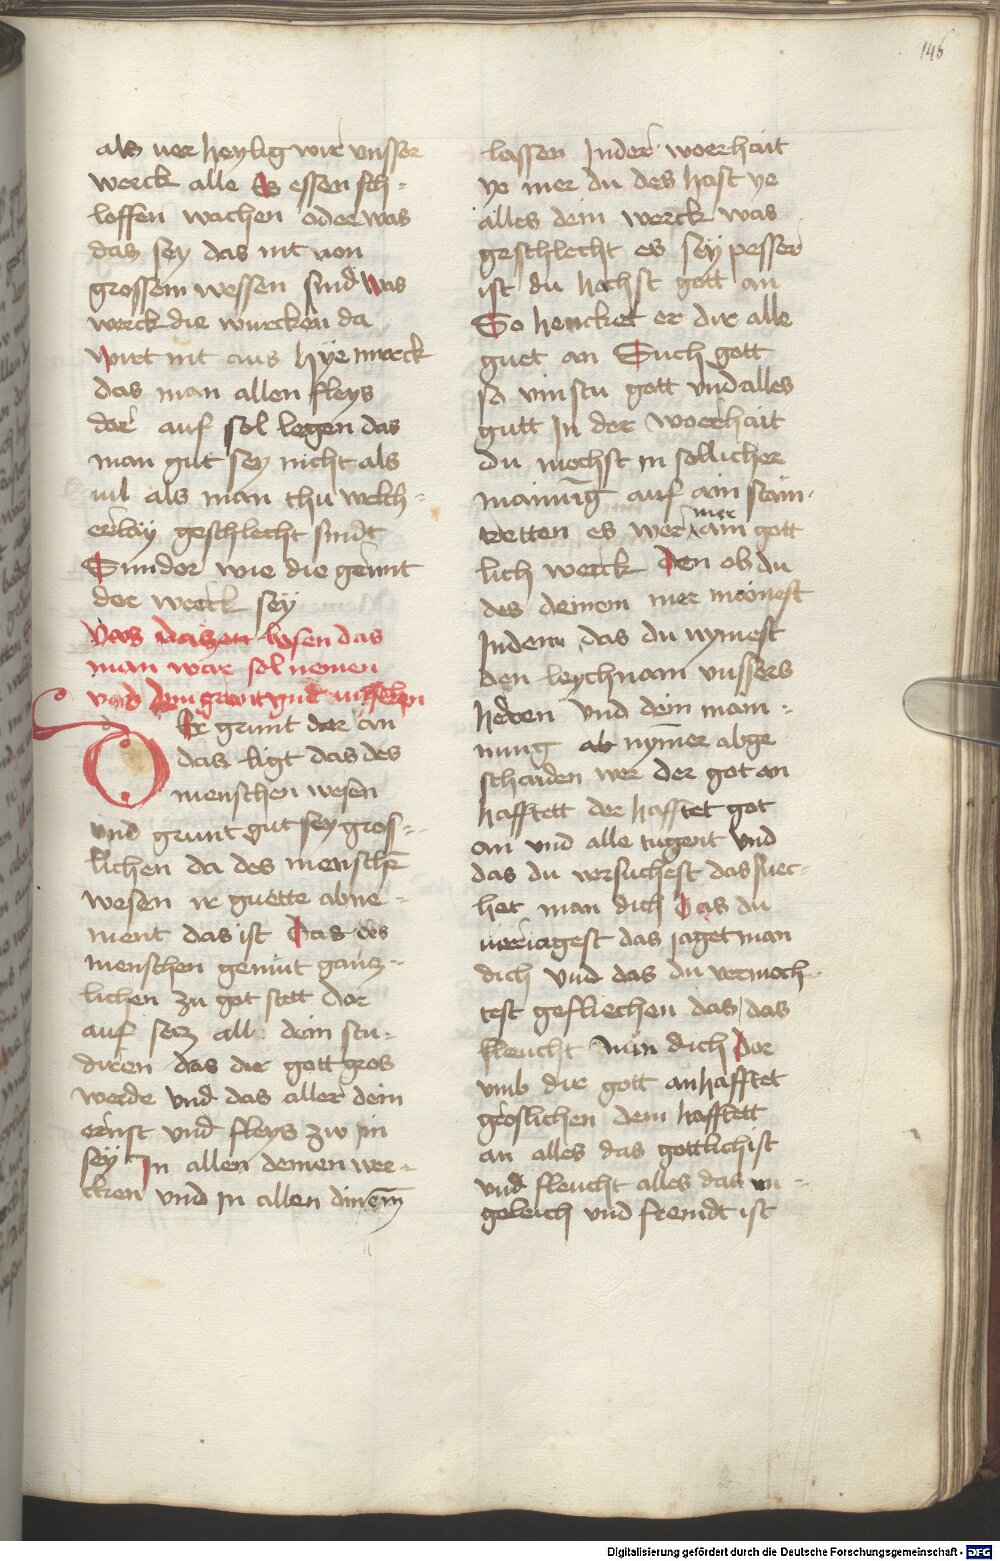 146
als uer heylig wir vnsser
werck alle Es essen sch-
loffen wachen oder was
das sey das nit von
grossem wessen sind was
werck die wurcken da
wirt nit aus hye mrck
das man allen fleys
dar auf sol legen das
man gut sey nicht als
uil als man thu welch-
erlay geschlecht sindt
Sunder wie die grunt
der werck sey
losen das
man war sol nemen
vnd
Er grunt dar an
das ligt das des
menschen wesen
vnd grunt gut sey gros-
lichen da des menschen
wesen ir guette abne-
ment das ist Das des
menschen gemut gancz-
lichen zu got stett dar
auf secz all dein stu-
diren das dir gott gros
werde vnd das aller dein
ernst vnd fleys zw im
sey In allen deinen wer-
cken vnd in allen dinem
lassen In der woerhait
ye mer du des hast ye
alles dein werck was
geschlecht es sey pesser
ist du hechst gott an
So hencket er dir alle
guet an Such gott
so vinstu gott vnd alles
gutt In der woerhait
du mechst in sollicher
mainung auf ain stain
tretten es wer mer ain gott
lich werck Den ob du
des deinem mer mainest
Indem das du nymest
den leychnam vnssers
heren vnd dein main-
nung ab nymer abge
schaiden wer der got an
hafftett der hafftet got
an vnd alle tugent vnd
das du versuchest das suec-
het man dich Das du
veriagest das jaget man
dich vnd das du vermoch-
test gefliechen das das
fleucht nun dich Dar
vmb dir gott anhafftet
groslichen dem hafftett
an alles das gottlich ist
vnd fleucht alles das vn-
geleich vnd fremdt ist
Digitalisierung gefördert durch die Deutsche Forschungsgemeinschaft - DFG